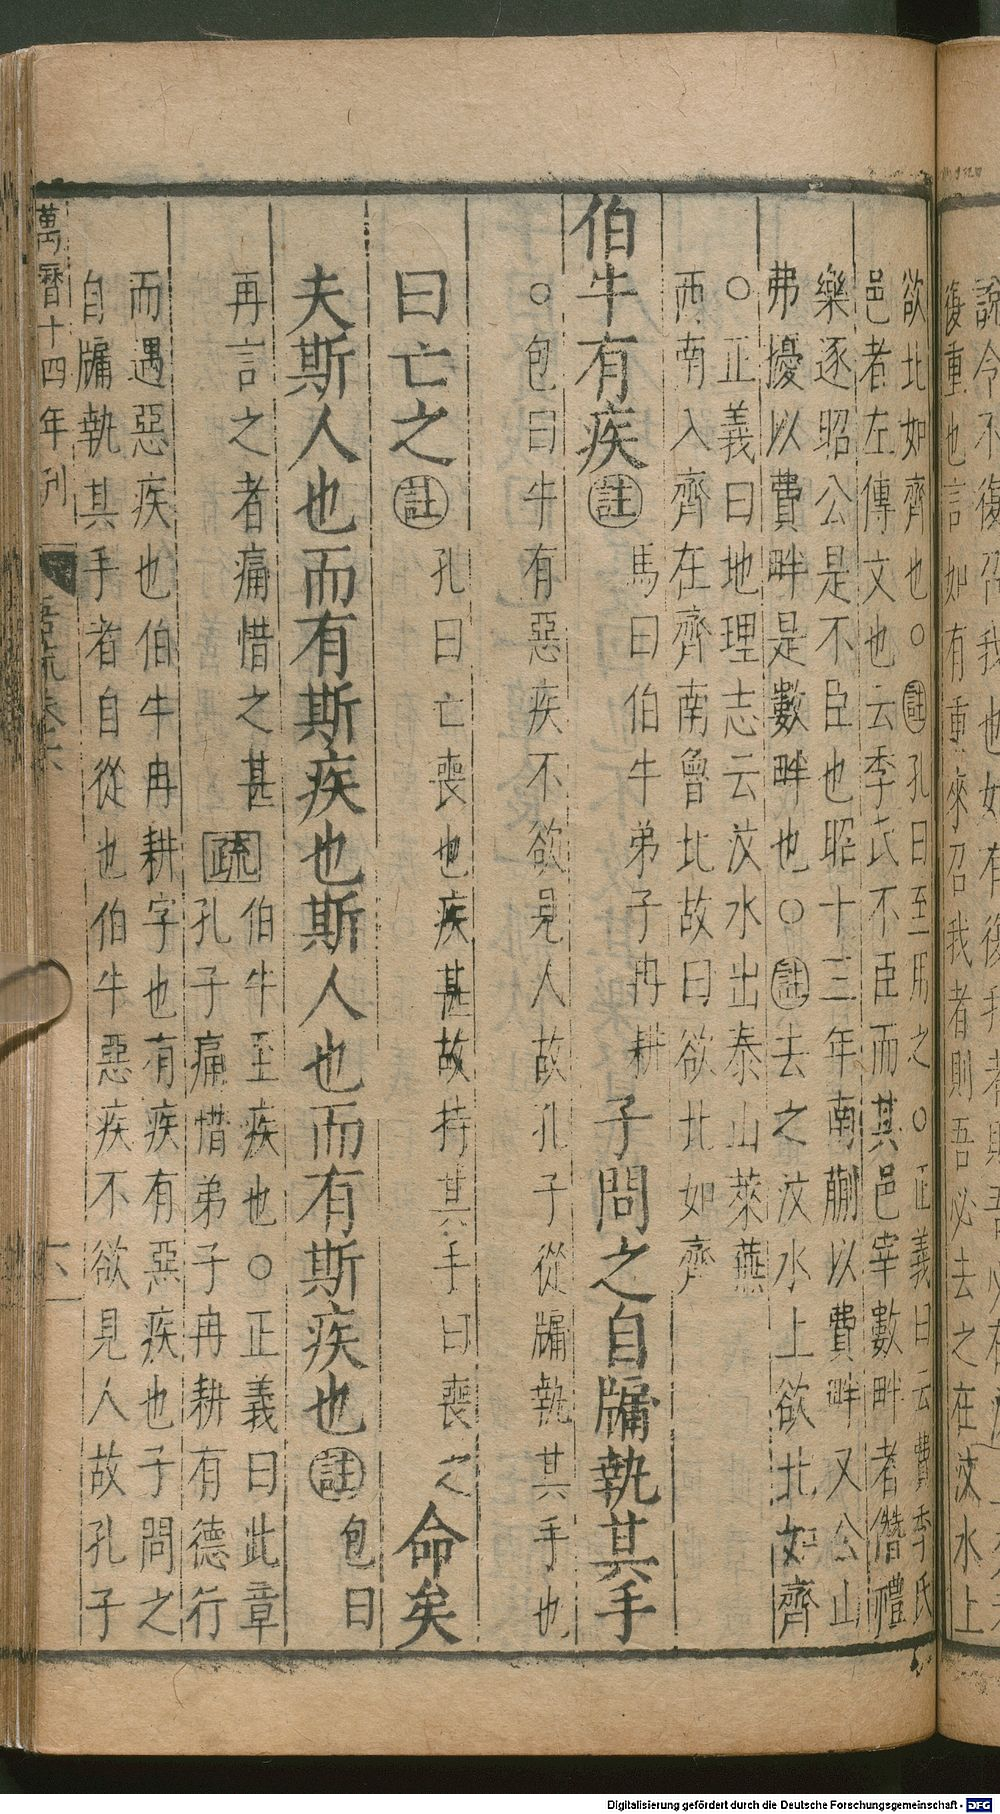 說令不復召我也如有復我者則吾必在汶
復重也言如有重來召我者則吾必去之在汶水上
欲北如齊也○註孔曰至用之○正義曰云費季氏
邑者左傳文也云季氏不臣而其邑宰數畔者僭禮
樂逐昭公是不臣也昭十三年南蒯以費畔又公山
弗擾以費畔是數畔也○註去之汶水上欲北如齊
○正義曰地理志云汶水出泰山萊蕪
西南入齊在齊南魯北故曰欲北如齊
伯牛有疾註馬曰伯牛弟子冉耕子問之自牖執其手
○包曰牛有惡疾不欲見人故孔子從牖執其手也
曰亡之註孔曰亡喪也疾甚故持其手曰喪之命矣
夫斯人也而有斯疾也斯人也而有斯疾也註包曰
再言之者痛惜之甚疏伯牛至疾也○正義曰此章
孔子痛惜弟子冉耕有德行
而遇惡疾也伯牛冉耕字也有疾有惡疾也子問之
自牖執其手者自從也伯牛惡疾不欲見人故孔子
萬曆十四年刊 吾疏卷六 六
Digitalisierung gefördert durch die Deutsche Forschungsgemeinschaft - DFG